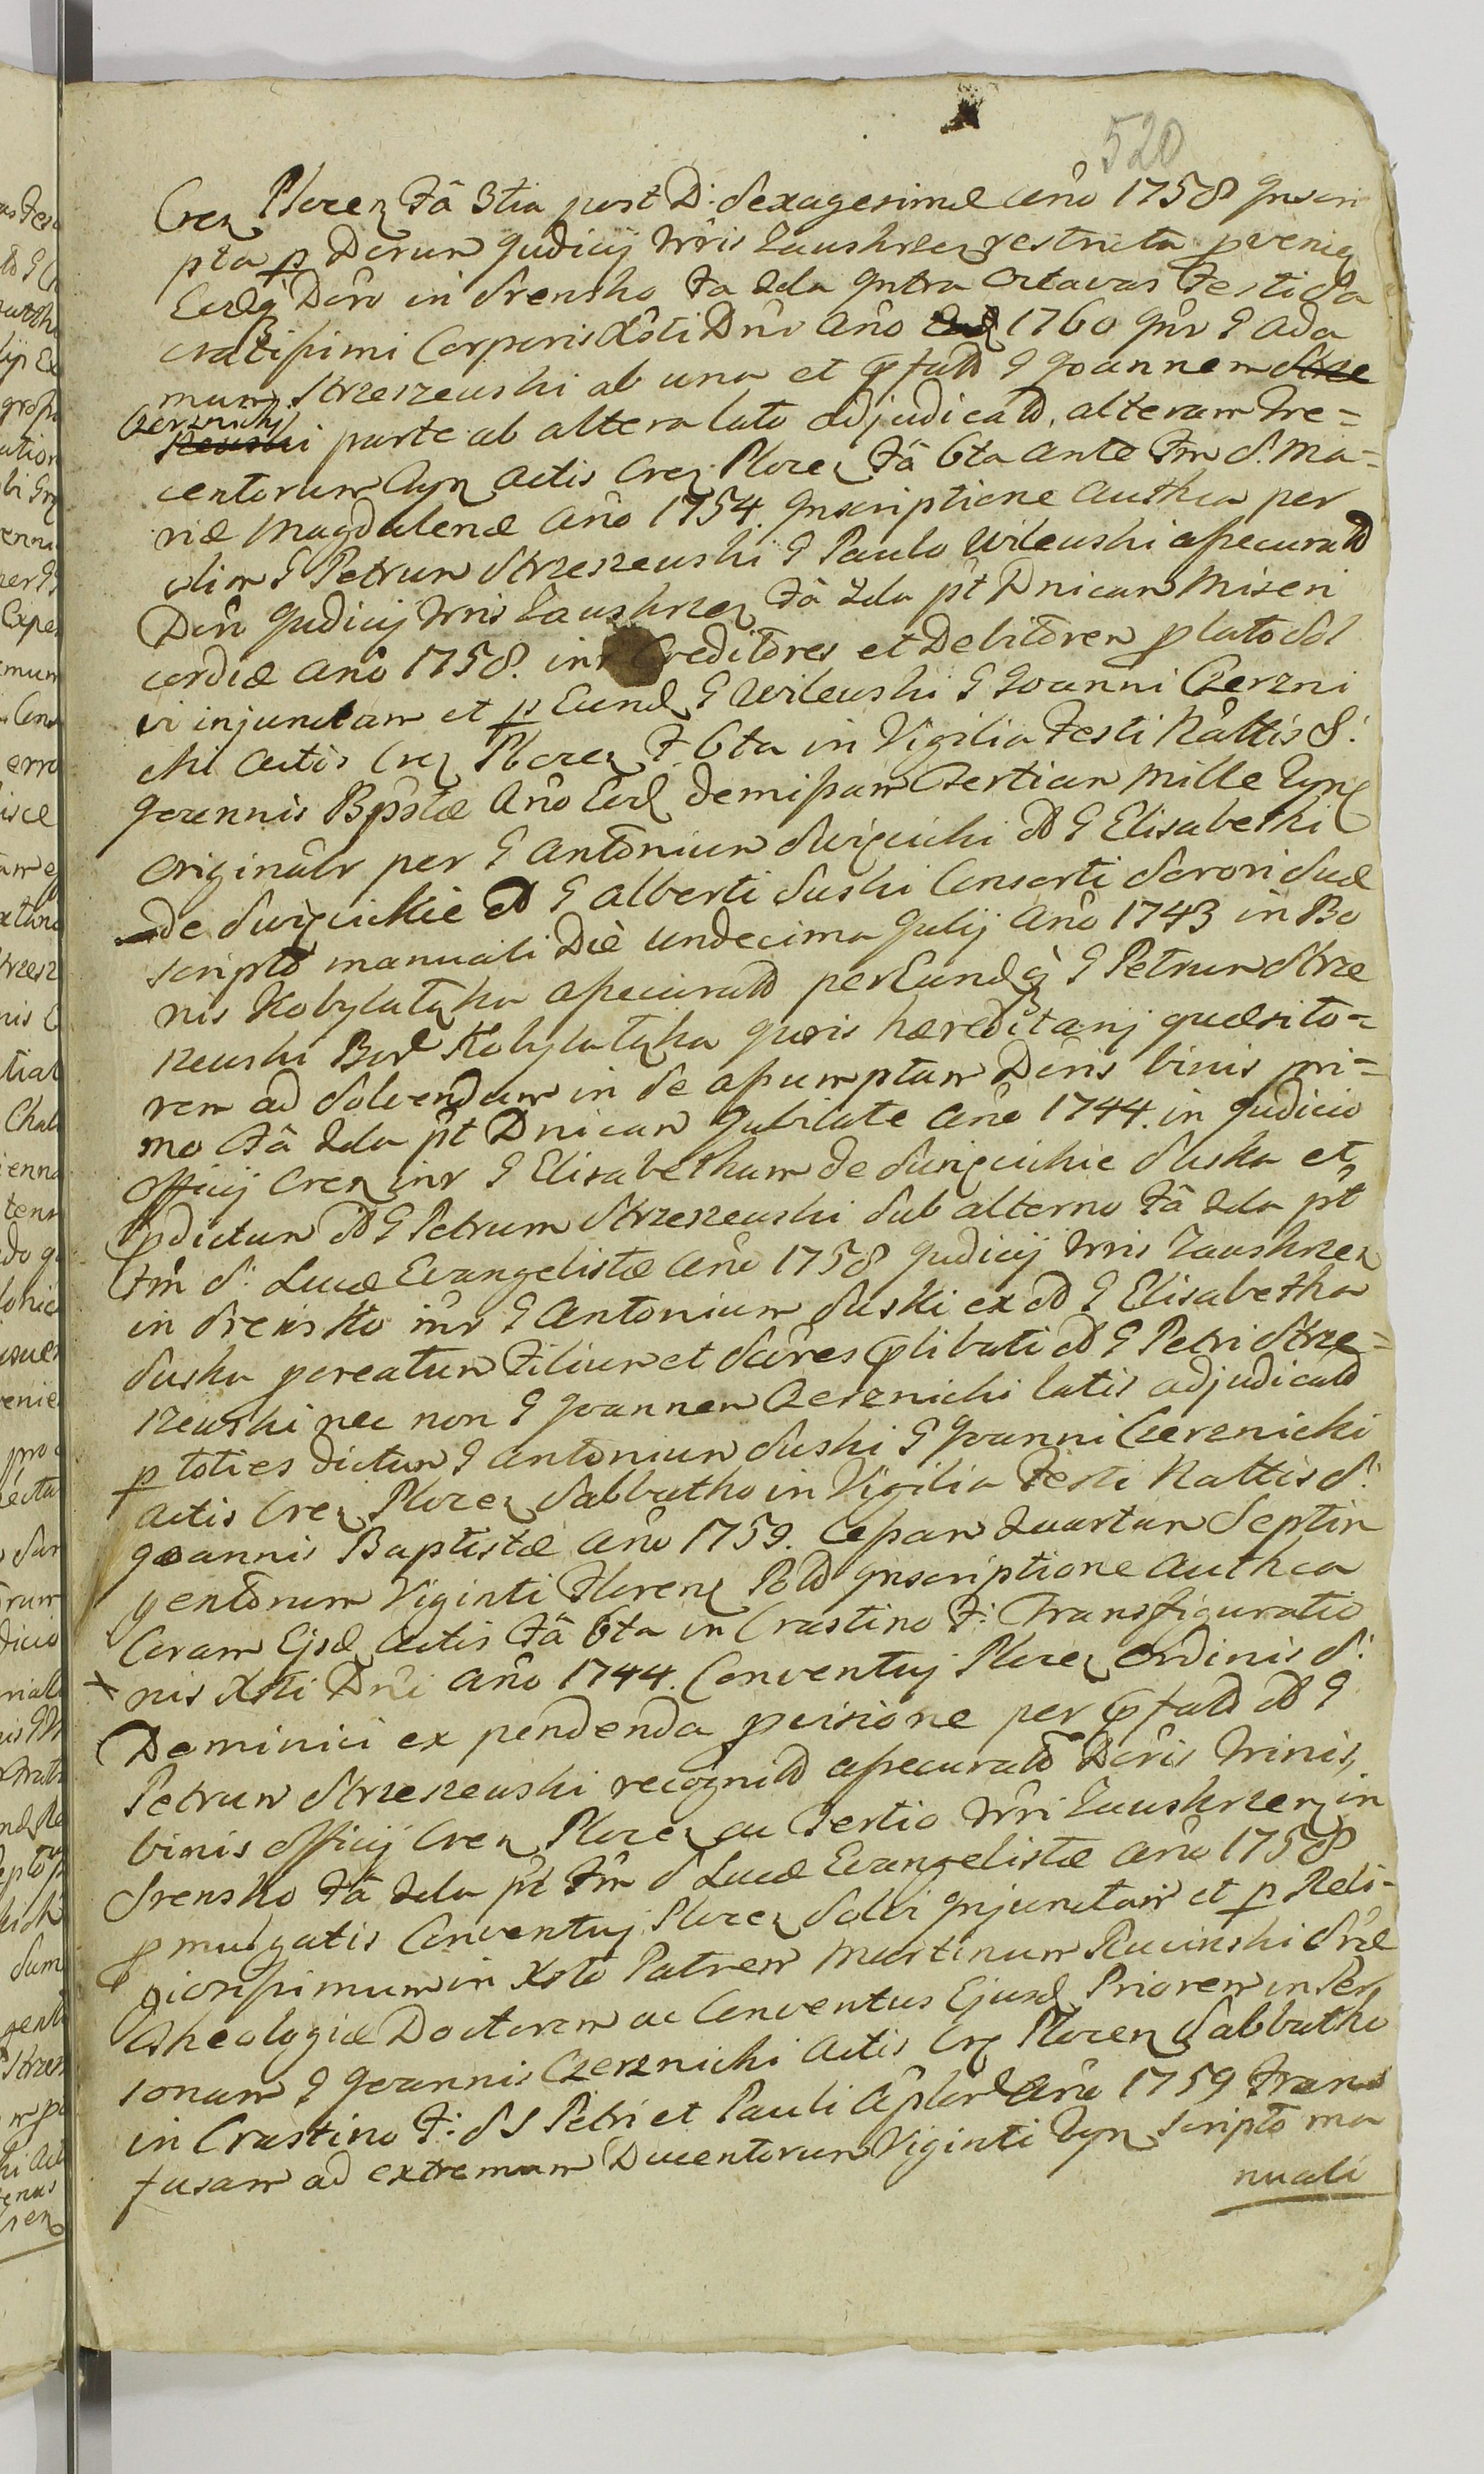 520
Cren Plocen Fâ 3tia post D: Sexagesimæ Anô 1758 Inscri
pta p Derum Judicij Trris Zawskrzen restricta pvenien
Eodq Dcrô in Srensko Fa 2da Intra Octavas Festi Sa
cratissimi Corporis Xsti Dnî Anô 1760 Inr G Ada
mum Strzeszewski ab una et pfatt G Joannem Strze
Czerznicki
szewski parte ab altera lato adjudicatt, alteram Tre=
centorum Tyn Actis Cren Plocen Fâ 6ta Ante Fm S. Ma=
riæ Magdalenæ Anô 1754. Inscriptione Authca per
olim G Petrum Strzeszewski G Paulo Wilewski assecuratt
Dcrô Judicij Trris Zawskrzen Fâ 2da pt Dnicam Miseri
cordiæ Anô 1758. inr Creditores et Debitorem plato Sol
vi injunctam et p Eund G Wilewski G Joanni Czerzni
cki Actis Cren Plocen F. 6ta in Vigilia Festi Nattis S:
Joannis Bpstæ Anô Eod demissam Tertiam Mille Tyn
Originalr per G Antonium Swięcicki G Elisabethi
de Swięcickie G Alberti Suski Consorti Sorori Suæ
scripto manuali Die Undecima Julij Anô 1743 in Bo
nis Kobylatka assecuratt per Eundq G Petrum Strze
szewski Bor Kobylatka Juris hæreditarij quæsito=
rem ad Solvendum in Se assumptam Dcris binis pri=
mo Fâ 2da pt Dnicam Jubilate Anô 1744. in Judicio
Officij Cren inr G Elisabetham de Swięcickie Suska et
pdictum G Petrum Strzeszewski Sub alterno Fâ 2da pt
Fm S: Lucæ Evangelistæ Anô 1758 Judicij Trris Zawskrzen
in Srensko inr G Antonium Suski ex G Elisabetha
Suska pcreatum Filium et Scôres plibati G Petri Strze=
szewski nec non G Joannem Czerznicki latis adjudicatt
p toties dictum G Antonium Suski G Joanni Czerznicki
Actis Cren Plocen Sabbatho in Vigilia Festi Nattis S:
Joannis Baptistæ Anô 1759. Cessam Quartam Septin
gentorum Viginti Floren Poł Inscriptione Authca
Coram Ejsd Actis Fâ 6ta in Crastino F: Transfiguratio
nis Xsti Dni Anô 1744. Conventuj Plocen Ordinis S:
Dominici ex pendenda pvisione per pfatt G
Petrum Strzeszewski recognitt assecuratt Dcris Trinis,
binis Officij Cren Plocen ac Tertio Trri Zawskrzen in
Srensko Fâ 2da pt Fm S Lucæ Evangelistæ Anô 1758
pmulgatis Conventuj Plocen Solvi Injunctam et p Reli-
giosissimum in Xsto Patrem Martinum Racinski Sræ
Theologiæ Doctorem ac Conventus Ejusd Priorem in Per
sonam G Joannis Czerznicki Actis Cren Plocen Sabbatho
in Crastino F: SS Petri et Pauli Aplor Anô 1759 Trans
fusam ad extremum Ducentorum Viginti Tyn scripto ma
nuali